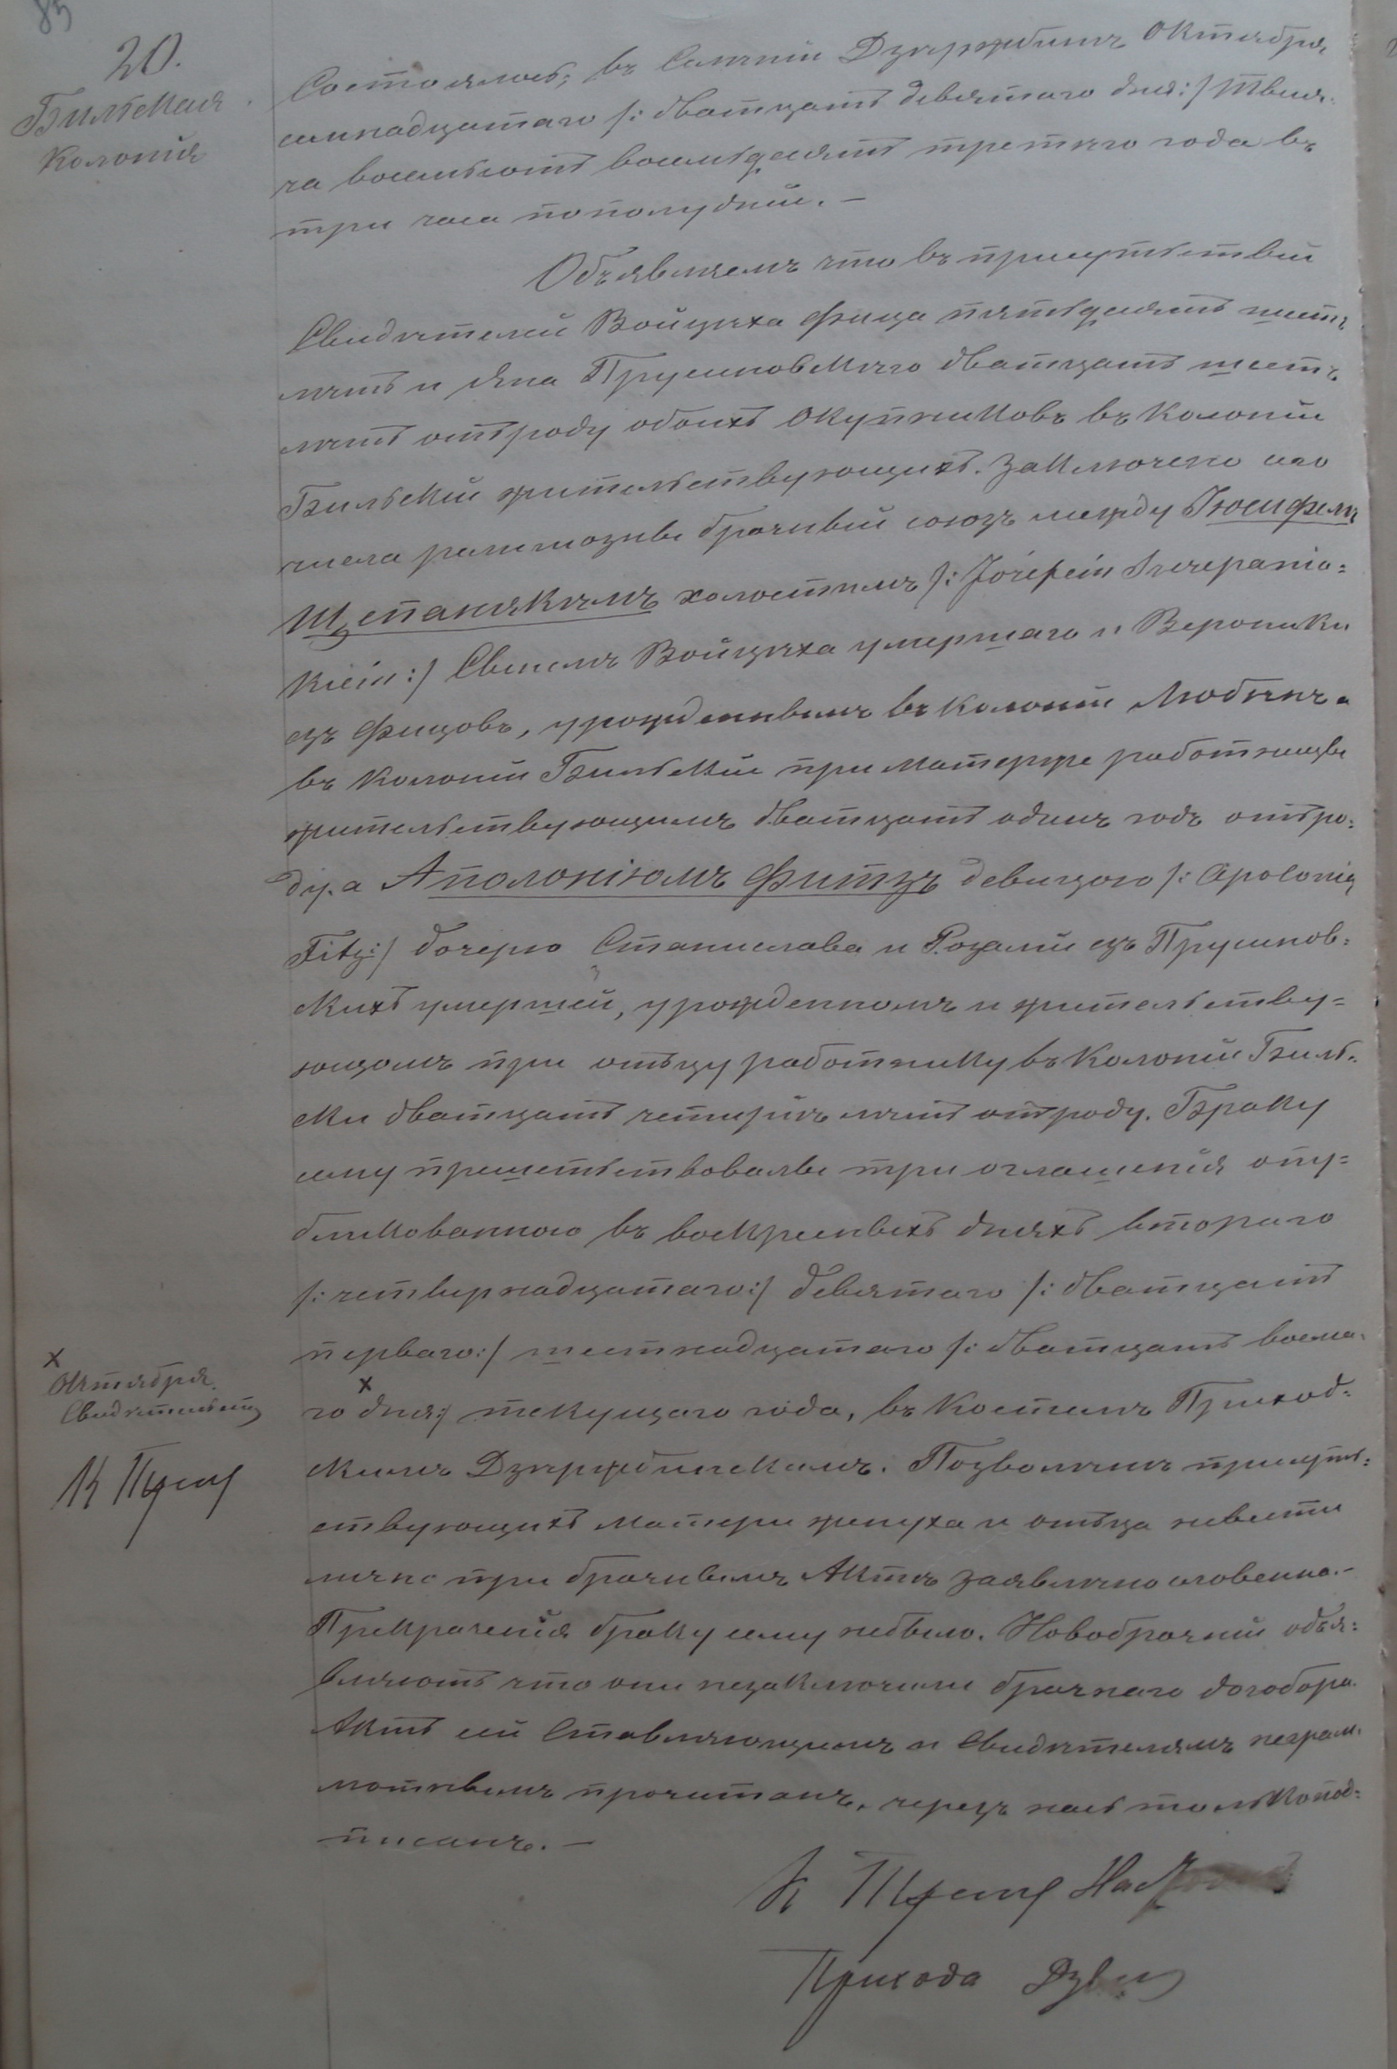 20.
Бильская
Колонія
Состоялось, въ Селеніи Дзержбинъ Октября
семнадцатаго /: дватцать девятаго дня:/ тыся-
ча восемьсотъ восемьдесятъ третяго года въ
три часа пополудній. —
Объявляемъ что въ присутствіи
Свидѣтелей Войцѣха Фица пятьдесятъ шесть
лѣтъ и Яна Прусиновскаго дватцать шесть
лѣтъ отъ роду обоихъ Окупниковъ въ Колоніи
Бильскій жительствующихъ. Заключено сего
числа религіозны брачный союзъ между Іосифомъ
Щепанякѣмъ холостымъ /: Józefem Szczepania-
kiem :/ Сыномъ Войцѣха умершаго и Вероники
езъ Фицовъ, урожденнымъ въ Колоніи Любинѣ а
въ Колоніи Бильскій при матерже работницы
жительствующимъ дватцать одинъ годъ отъ ро-
ду. а Аполоніюмъ Фитзъ девицою /: Apolonią
Fitz :/ дочерю Станислава и Розалій езъ Прусинов-
скихъ умершей, урожденномъ и жительству-
ющомъ при отьцу работнику въ Колоніи Биль-
ски дватцать четыри лѣтъ отроду. Браку
сему прешетьствовалы три оглашенія опу-
бликованного въ воскресныхъ дняхъ втораго
/: четвернадцатаго :/ девятаго /: дватцать
перваго :/ шестнадцатаго /: дватцать восма-
го х дня :/ текущаго года, въ Костелѣ Приход-
скимъ Дзержбинскамъ. Позволѣніе присуть-
ствующихъ матери жениха и отьца невѣсти
лично при брачнымъ Актѣ заявлено словенно. —
Прекраченія браку сему небыло. Новобрачніи объя-
вляютъ что они незаключили брачнаго договора.
Актъ сей Ставляющимъ и Свидѣтелямъ неграм-
мотнымъ прочитанъ, черезъ насъ только под-
писанъ. —
х
Октября
Свидѣтельст
Прихода